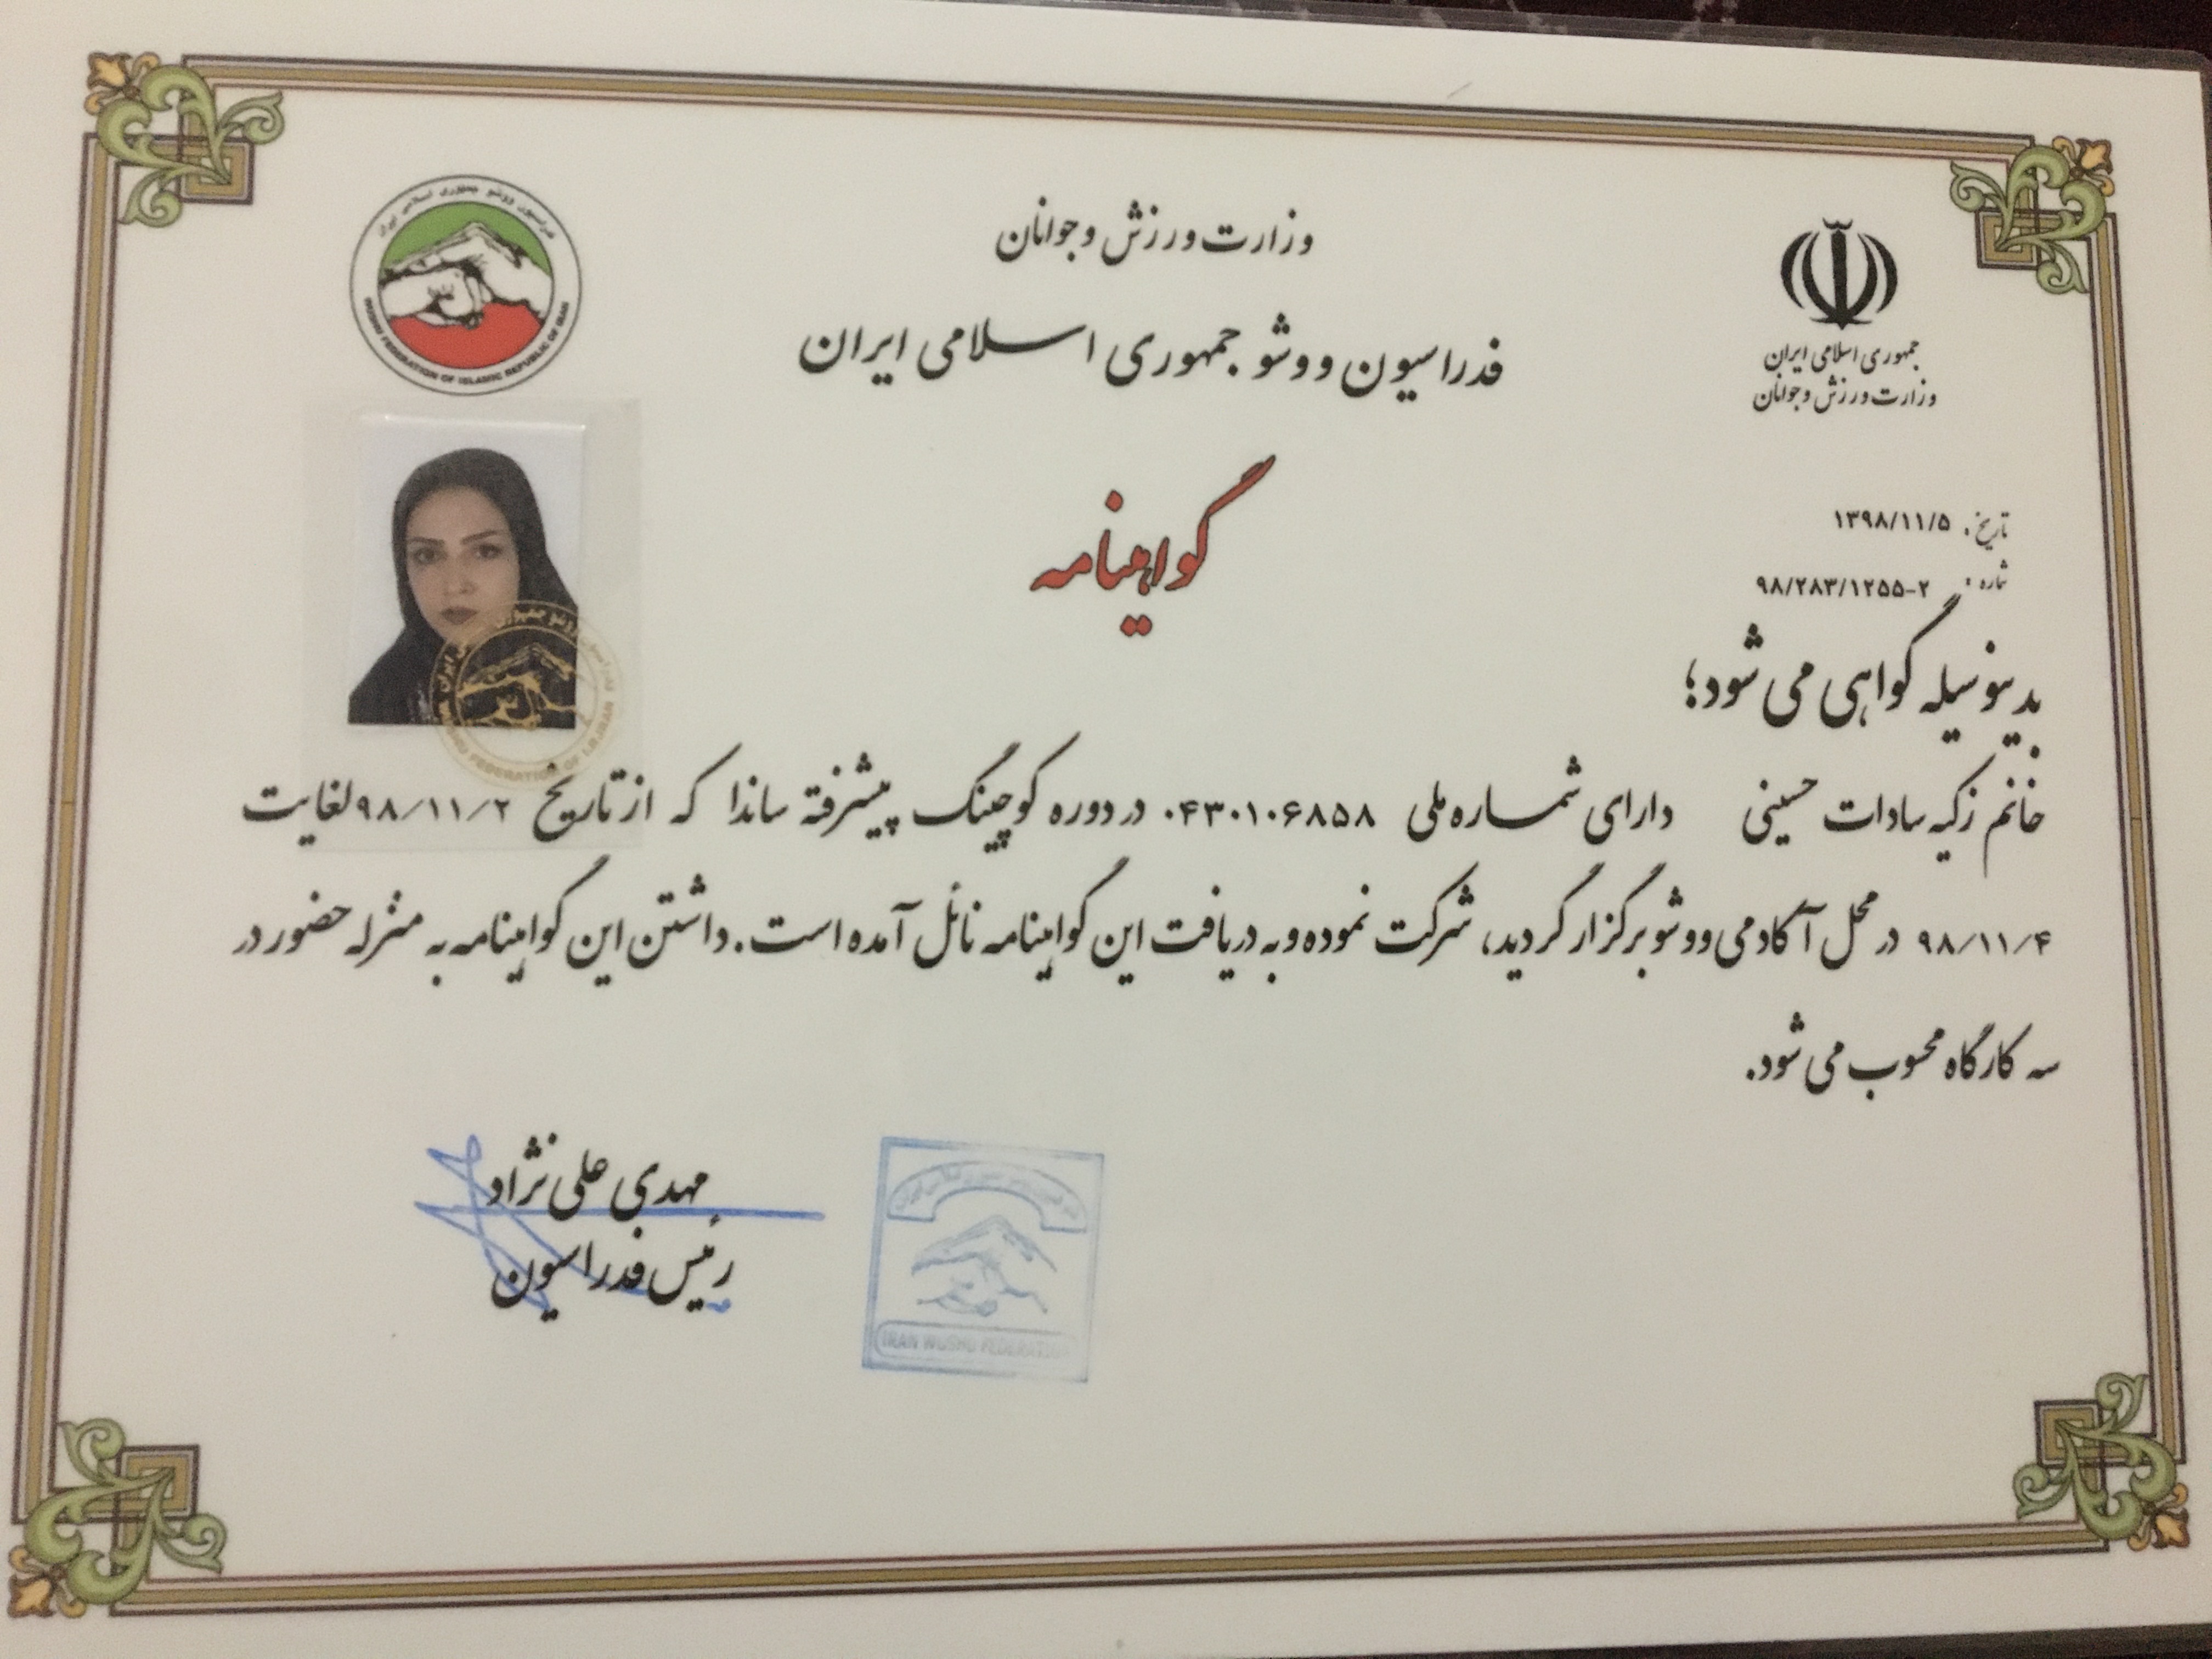 وزارت ورزش و جوانان
فدراسیون ووشو جمهوری اسلامی ایران
جمهوری اسلامی ایران
وزارت ورزش و جوانان
فدراسیون ووشو جمهوری اسلامی ایران
WUSHU FEDERATION OF ISLAMIC REPUBLIC OF IRAN
گواهینامه
تاریخ: ۱۳۹۸/۱۱/۵
شماره: ۹۸/۲۸۳/۱۲۵۵-۲
بدینوسیله گواهی می شود؛
خانم زکیه سادات حسینی دارای شماره ملی ۰۴۳۰۱۰۶۸۵۸ در دوره کوچینگ پیشرفته ساندا که از تاریخ ۹۸/۱۱/۲ لغایت
۹۸/۱۱/۴ در محل آکادمی ووشو برگزار گردید، شرکت نموده و به دریافت این گواهینامه نائل آمده است. داشتن این گواهینامه به منزله حضور در
سه کارگاه محسوب می شود.
مهدی علی نژاد
رئیس فدراسیون
IRAN WUSHU FEDERATION